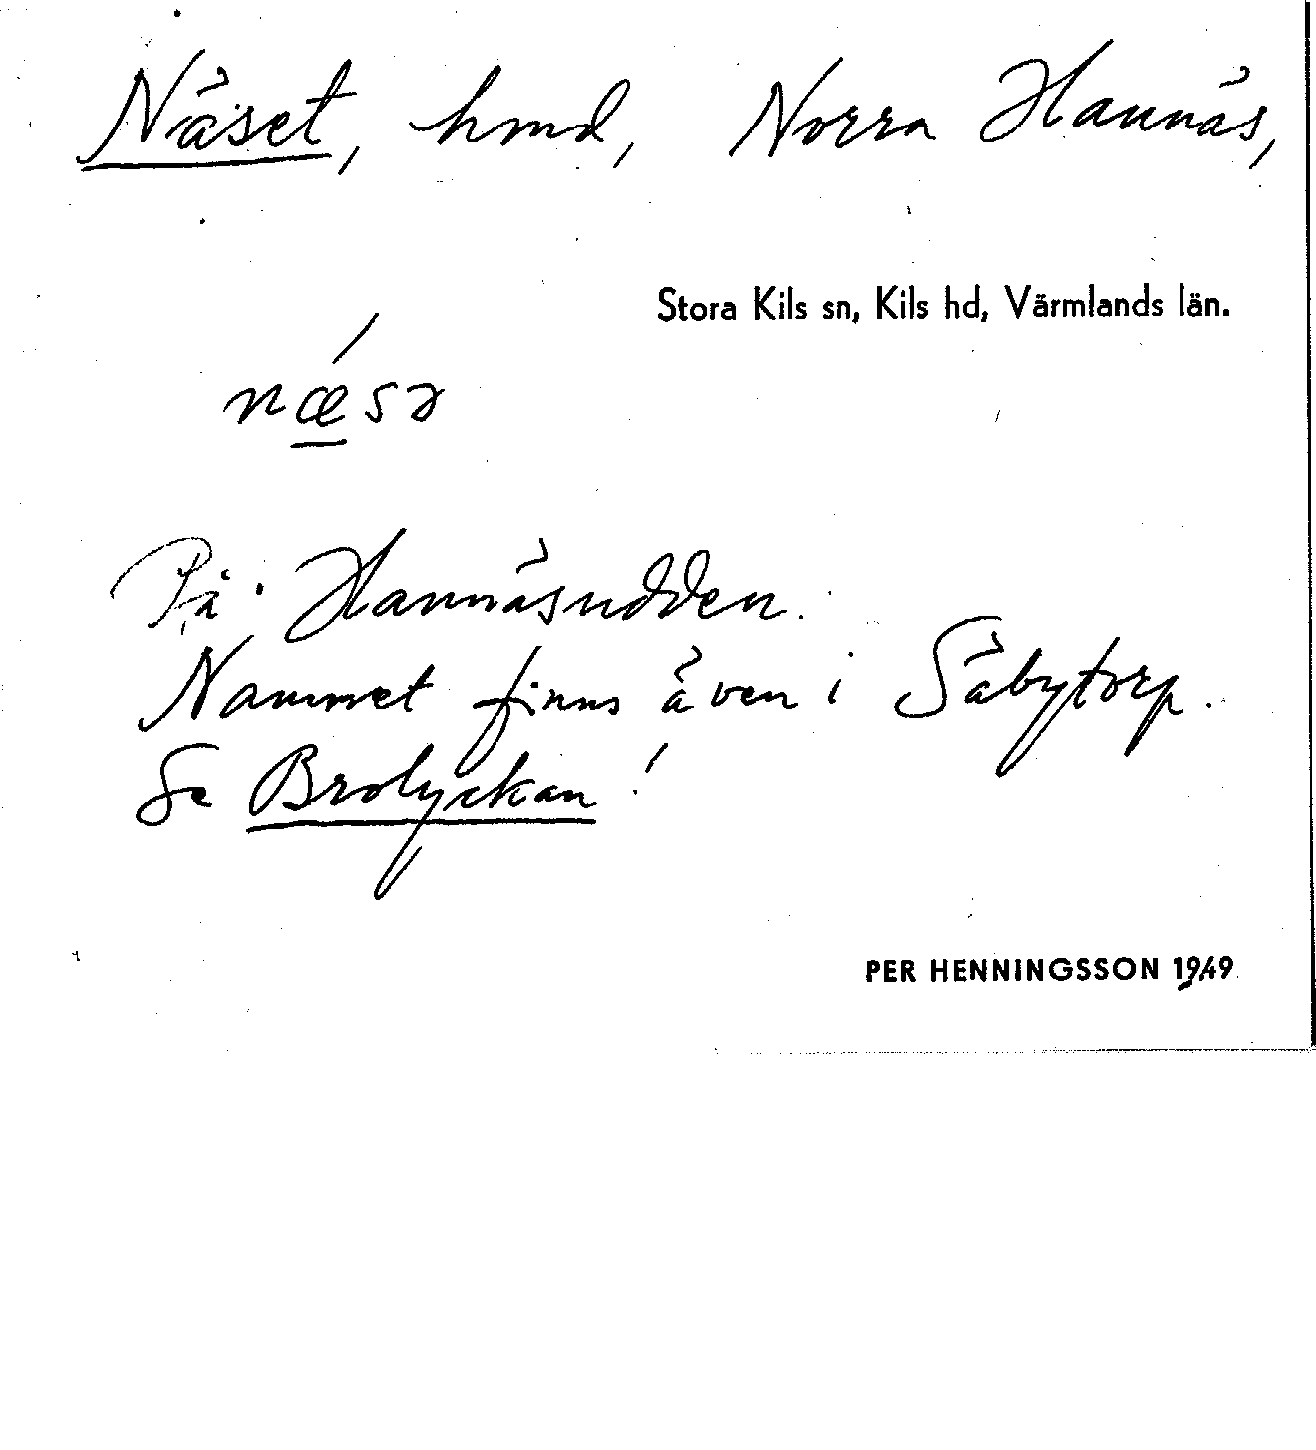 Näset, hmd, Norra Hannäs,
Stora Kils sn, Kils hd, Värmlands län.
nǽ̲sə
På Hannäsudden.
Namnet finns även i Säbytorp.
Se Brolyckan!
PER HENNINGSSON 1949